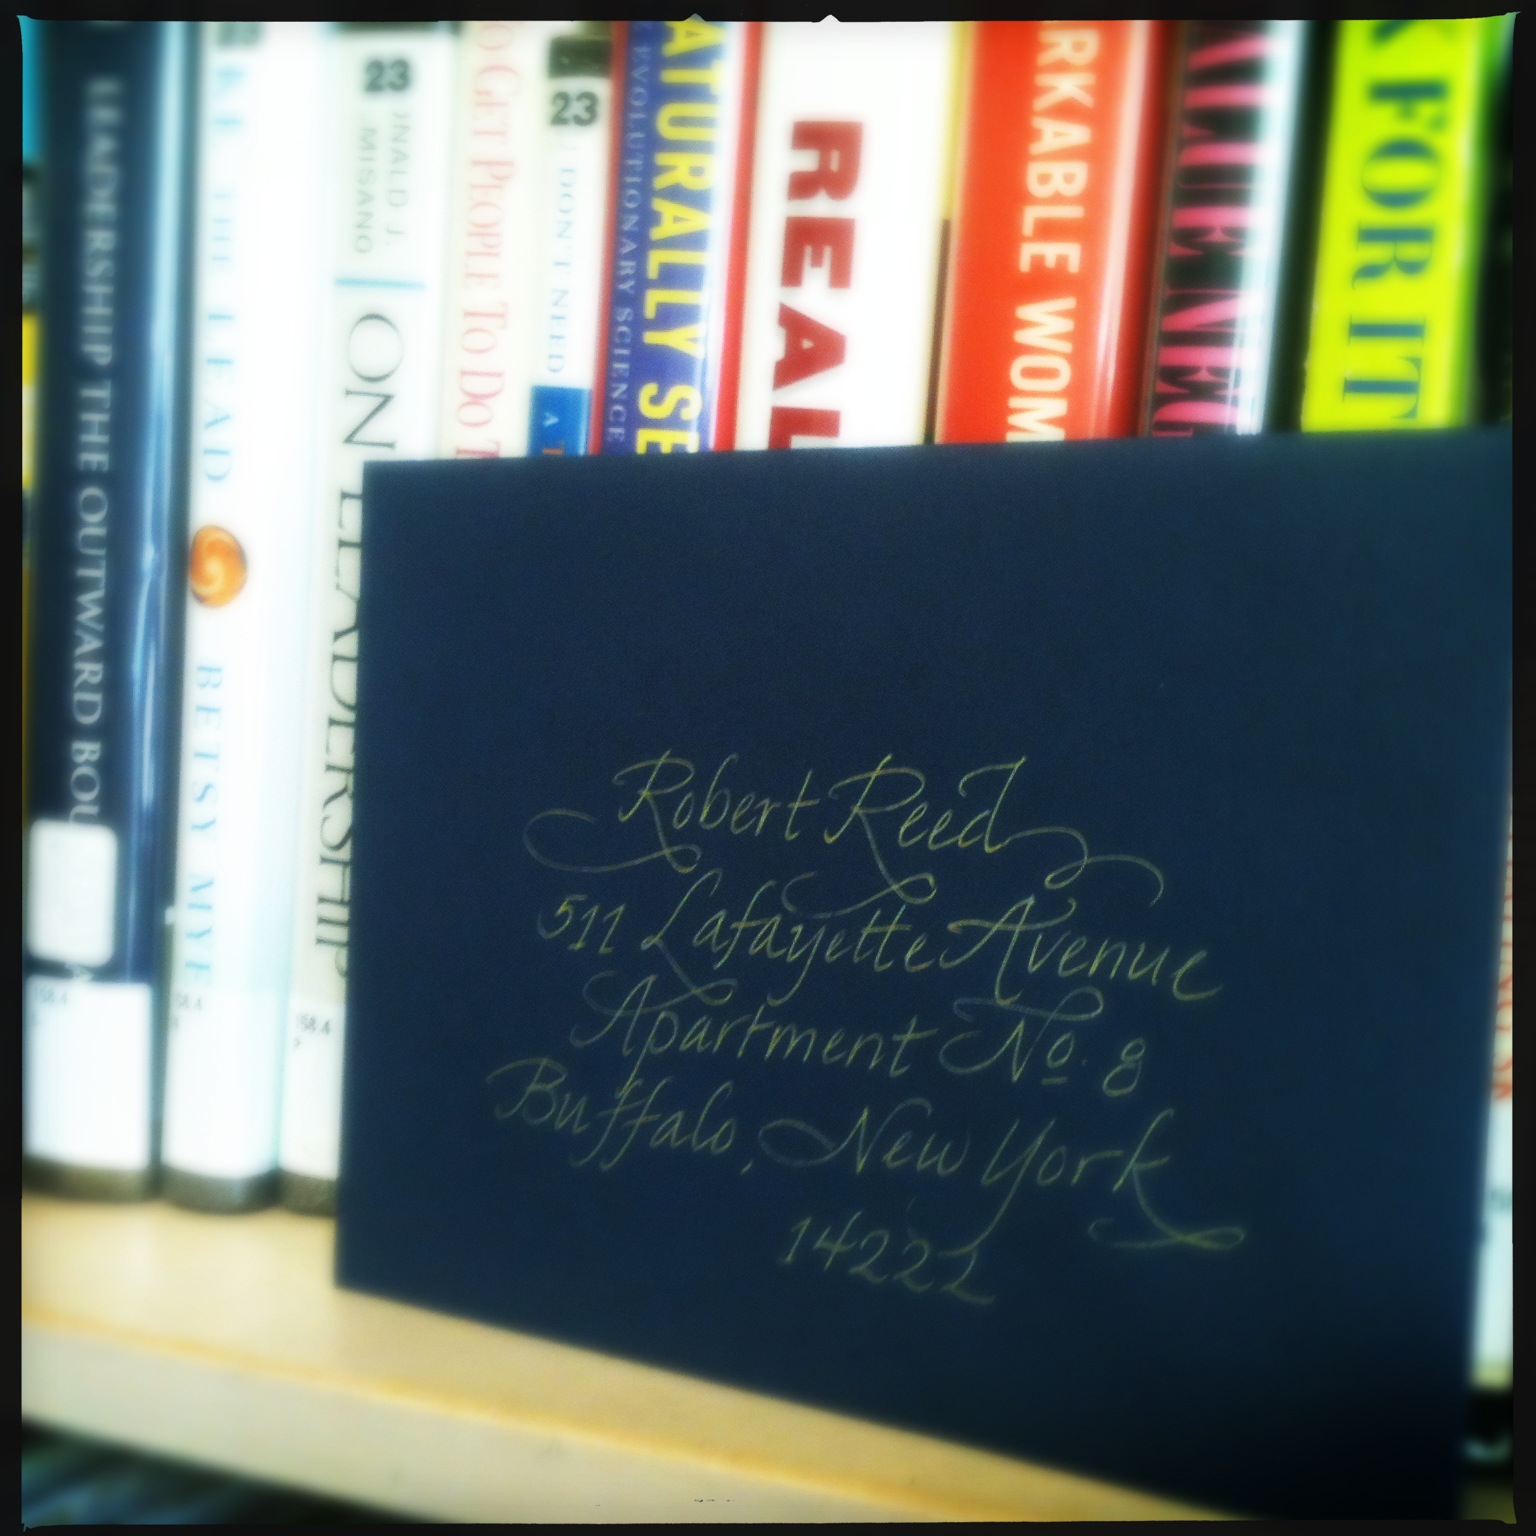 LEADERSHIP THE OUTWARD BOU
THE LEAD
BETSY MYE
23
ON LEADERSHIP
O GET PEOPLE TO DO T
23
DON'T NEED
A
ATURALLY SE
EVOLUTIONARY SCIENCE
REAL
RKABLE WOM
K FOR IT
158.4
158.4
158.4
Robert Reed
511 Lafayette Avenue
Apartment No. 8
Buffalo, New York
14222